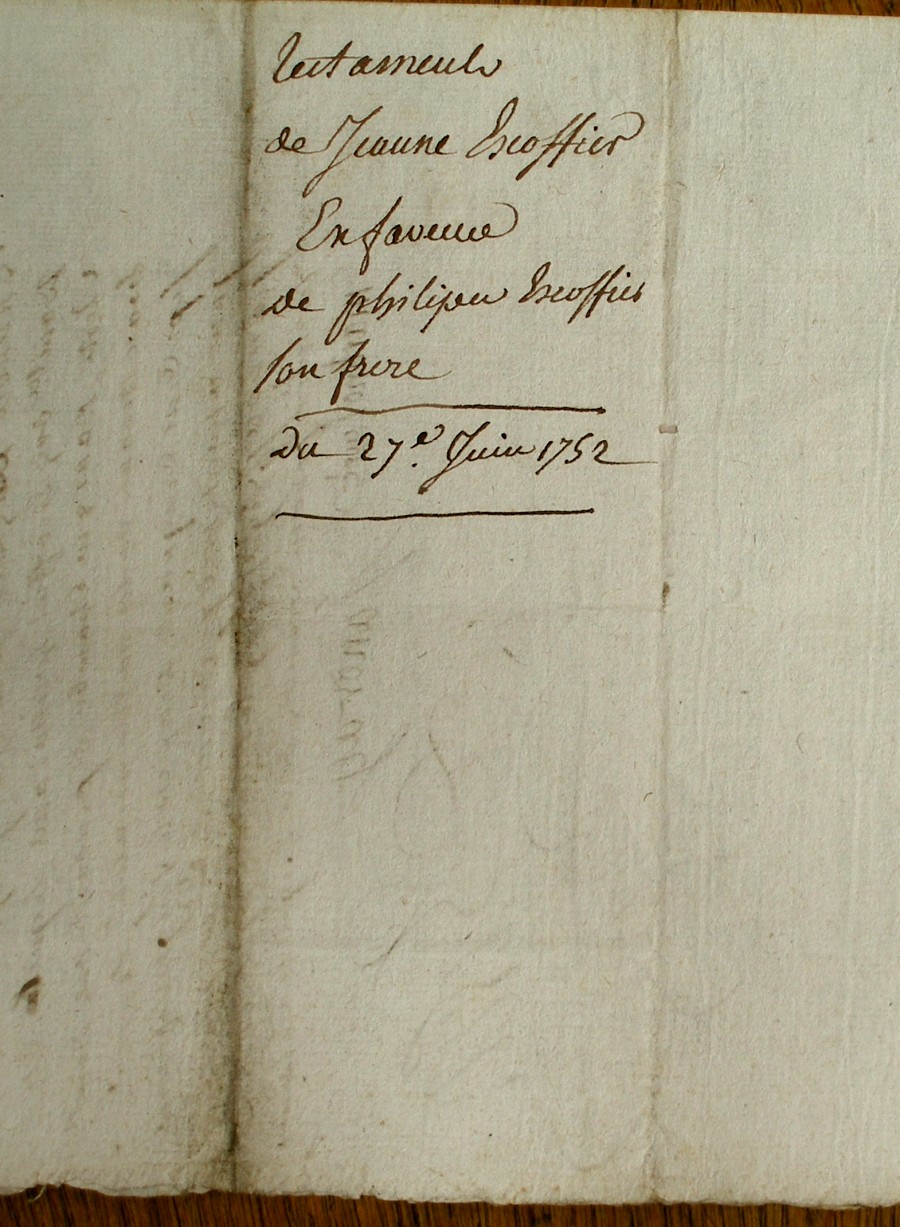 testament
de Jeanne Escoffier
En faveur
de philipeu Escoffier
son frere
Du 27e. Juin 1752